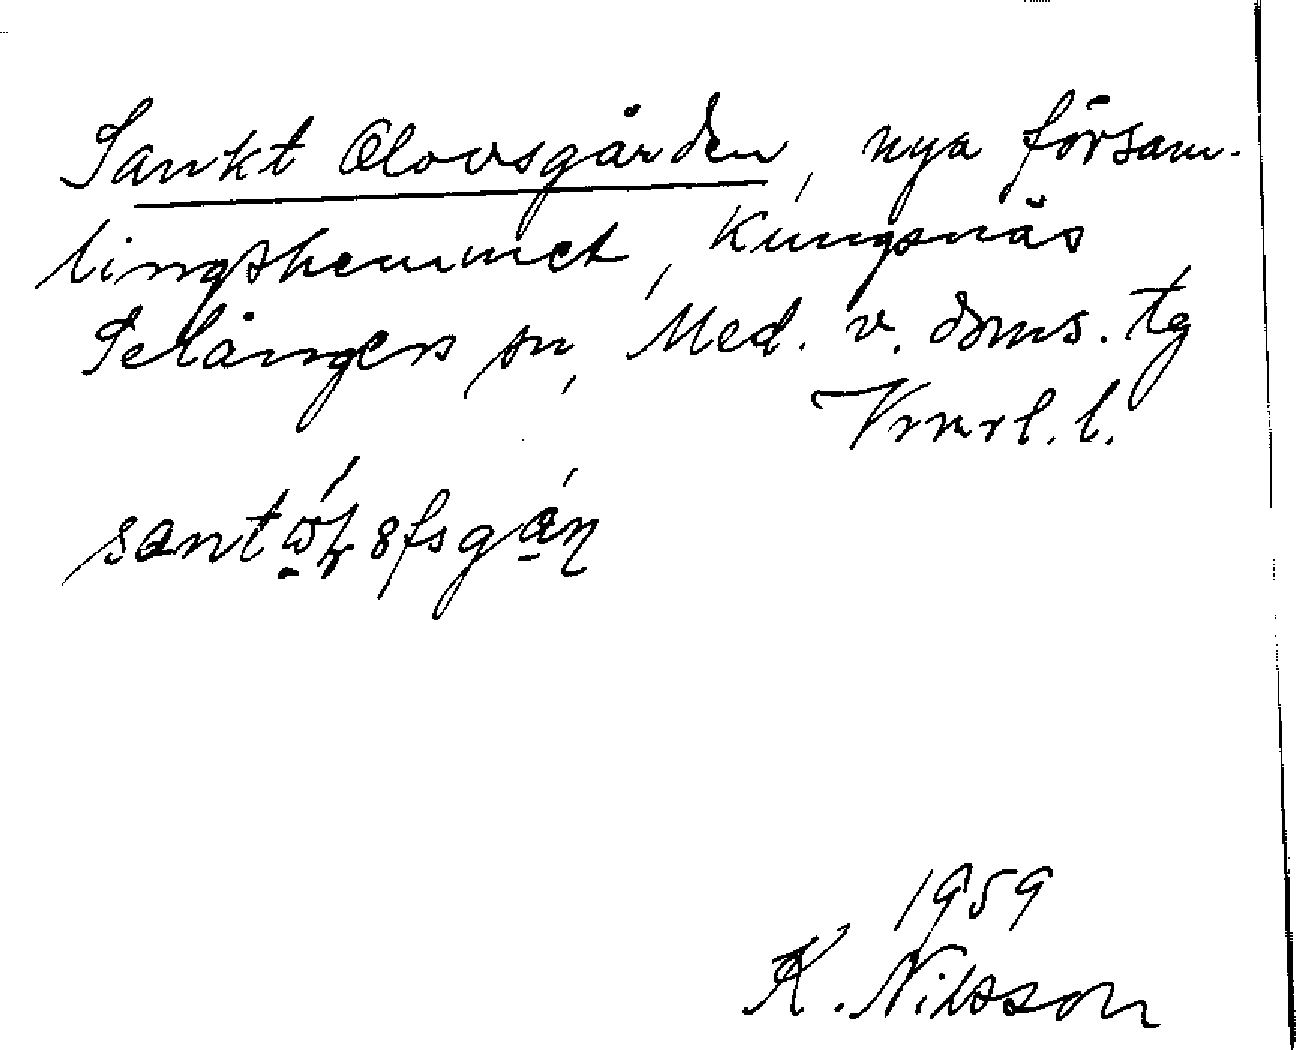 Sankt Olovsgården, nya försam-
lingshemmet, Kungsnäs
Selångers sn, Med. v. doms. tg
Vnrl. l.
1959
K. Nilsson